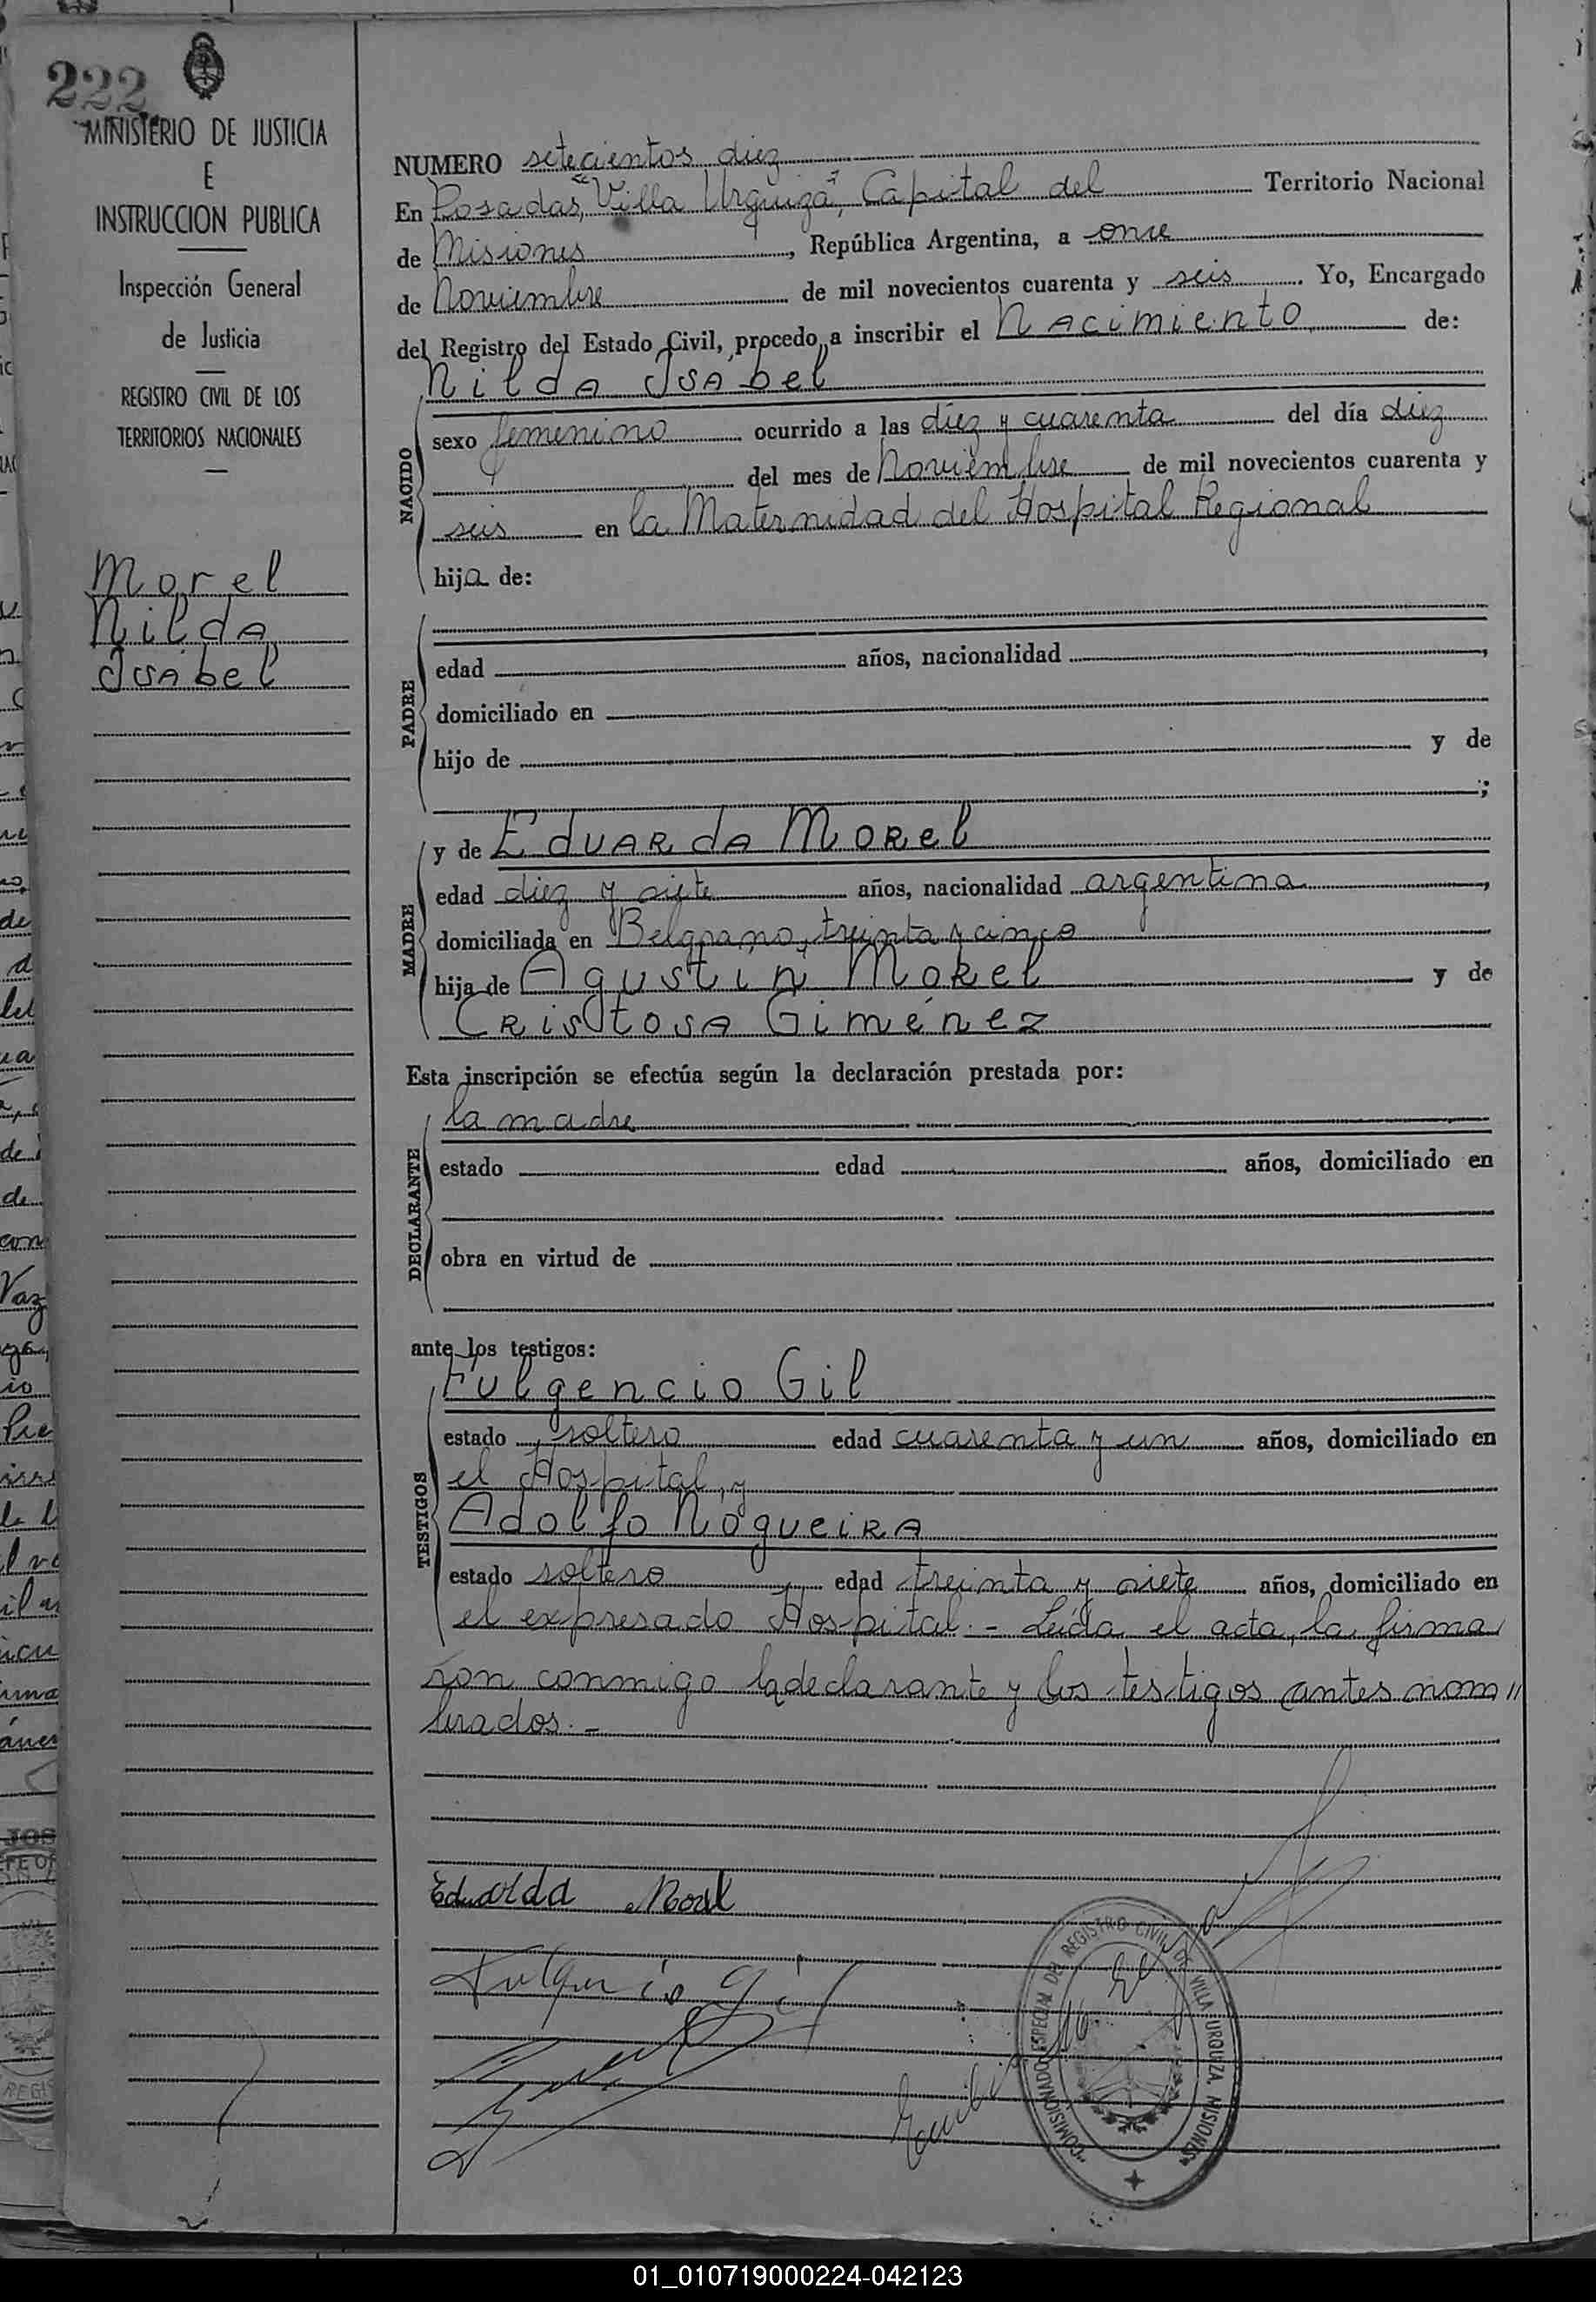 222
MINISTERIO DE JUSTICIA
E
INSTRUCCION PUBLICA
Inspección General
de Justicia
REGISTRO CIVIL DE LOS
TERRITORIOS NACIONALES
Morel
Nilda
Isabel
NUMERO setecientos diez
En Posadas, "Villa Urquiza", Capital del Territorio Nacional
de Misiones, República Argentina, a once
de Noviembre de mil novecientos cuarenta y seis. Yo, Encargado
del Registro del Estado Civil, procedo a inscribir el Nacimiento de:
Nilda Isabel
NACIDO
sexo femenino ocurrido a las diez y cuarenta del día diez
del mes de Noviembre de mil novecientos cuarenta y
seis en la Maternidad del Hospital Regional
hija de:
PADRE
edad años, nacionalidad ,
domiciliado en
hijo de y de
;
MADRE
y de Eduarda Morel
edad diez y siete años, nacionalidad argentina,
domiciliada en Belgrano, treinta y cinco
hija de Agustín Morel y de
Cristosa Giménez
Esta inscripción se efectúa según la declaración prestada por:
DECLARANTE
la madre
estado edad años, domiciliado en
obra en virtud de
ante los testigos:
TESTIGOS
Fulgencio Gil
estado soltero edad cuarenta y un años, domiciliado en
el Hospital, y
Adolfo Nogueira
estado soltero edad treinta y siete años, domiciliado en
el expresado Hospital.- Leída el acta, la firma
ron conmigo la declarante y los testigos antes nom"
brados.-
Eduarda Morel
Fulgencio Gil
COMISIONADO ESPECIAL DEL REGISTRO CIVIL DE VILLA URQUIZA, MISIONES
01_010719000224-042123